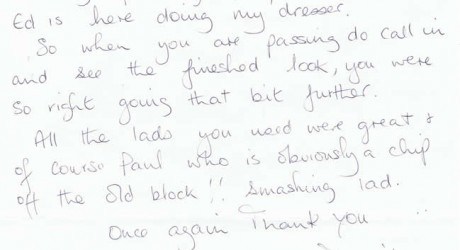 Ed is here doing my dresser.
So when you are passing do call in
and see the fineshed look, you were
so right going that bit further.
All the lads you used were great &
of course Paul who is obviously a chip
off the old block!! Smashing lad.
Once again Thank you